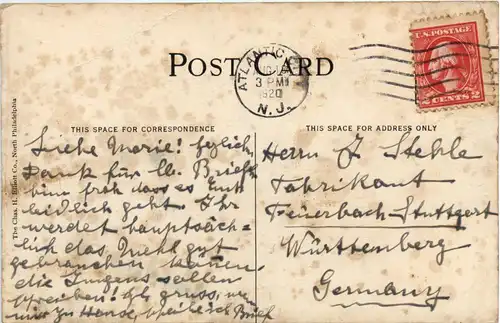 POST CARD
ATLANTIC
3 PM
1920
N. J.
U.S. POSTAGE
2 CENTS 2
THIS SPACE FOR CORRESPONDENCE
THIS SPACE FOR ADDRESS ONLY
The Chas. H. Elliott Co., North Philadelphia
Liebe Marie! Herzlich
Dank für lb. Brief
bin froh dass es Euch
leidlich geht. Ihr
werdet hauptsäch-
lich das Mehl gut
gebrauchen können
die Jungens sollen
schreiben. Gruss, wenn
zu Hause, schreibe ich Brief
Herrn J. Stehle
Fabrikant
Feuerbach-Stuttgart
Württemberg
Germany